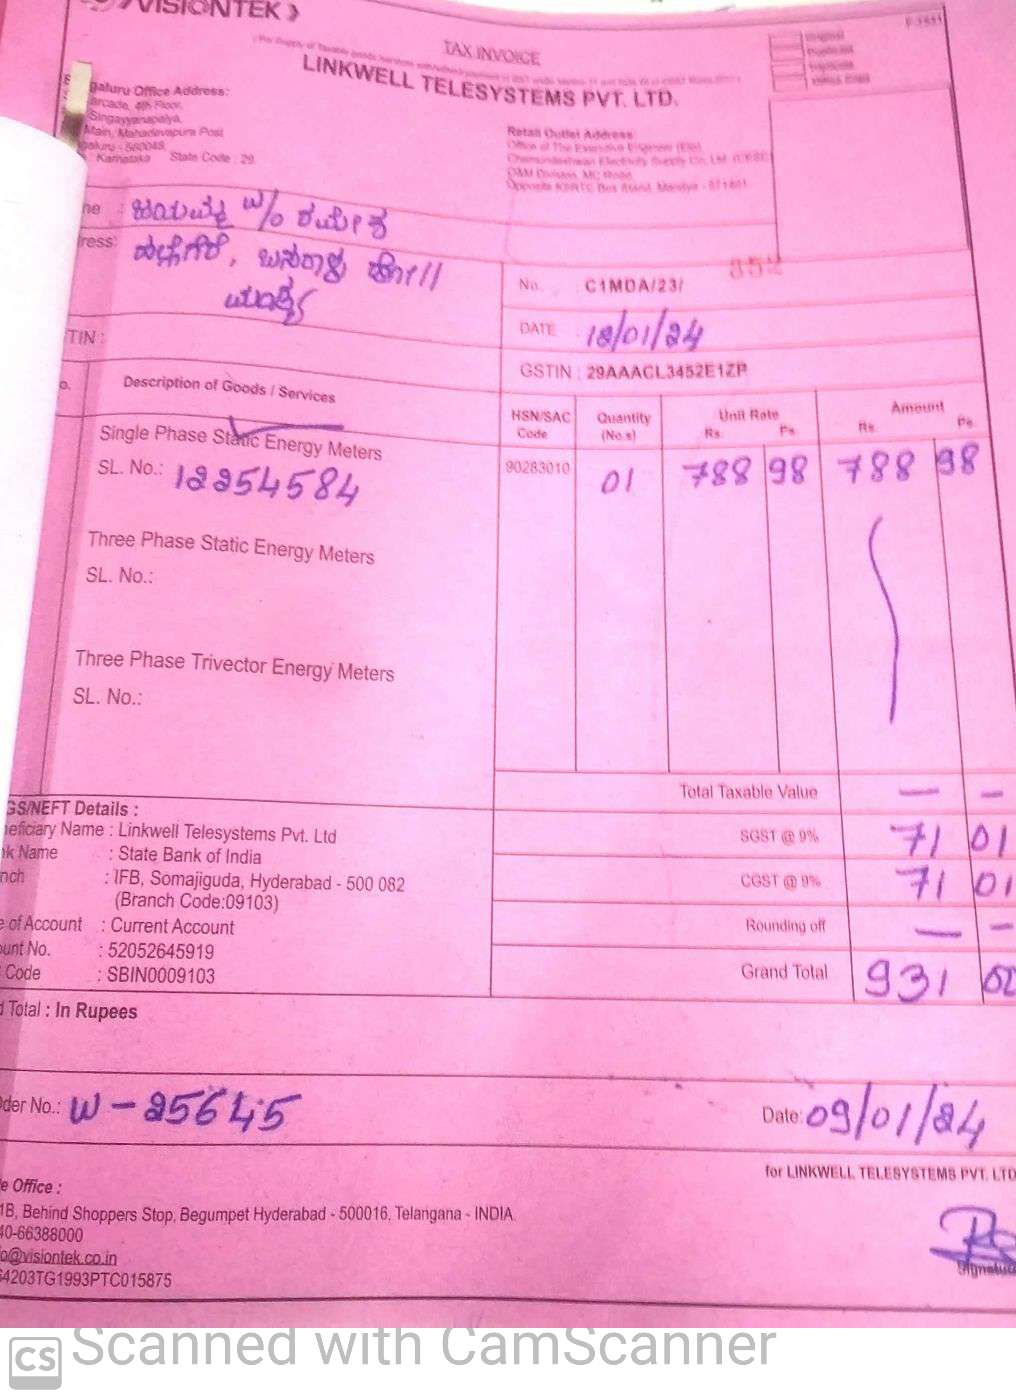 VISIONTEK
TAX INVOICE
LINKWELL TELESYSTEMS PVT. LTD.
galuru Office Address:
Arcade, 4th Floor,
Singayyanapalya,
Main, Mahadevapura Post
galuru - 560048
: Karnataka State Code : 29
Retail Outlet Address
Office of The Executive Engineer (Ele)
O&M Division, MC Road,
Opposite KSRTC Bus Stand, Mandya - 571401
me : W/o
ress:
No. : C1MDA/23/
DATE : 18/01/24
TIN :
GSTIN : 29AAACL3452E1ZP
o. Description of Goods / Services HSN/SAC Code Quantity (No.s) Unit Rate Rs. Ps. Amount Rs. Ps.
Single Phase Static Energy Meters 90283010 01 788 98 788 98
SL. No.: 12254584
Three Phase Static Energy Meters
SL. No.:
Three Phase Trivector Energy Meters
SL. No.:
Total Taxable Value — -
GS/NEFT Details :
neficiary Name : Linkwell Telesystems Pvt. Ltd
SGST @ 9% 71 01
nk Name : State Bank of India
nch : IFB, Somajiguda, Hyderabad - 500 082
CGST @ 9% 71 01
(Branch Code:09103)
e of Account : Current Account
Rounding off — -
unt No. : 52052645919
Code : SBIN0009103
Grand Total 931 00
d Total : In Rupees
der No.: W - 25645
Date: 09/01/24
for LINKWELL TELESYSTEMS PVT. LTD
e Office :
1B, Behind Shoppers Stop, Begumpet Hyderabad - 500016. Telangana - INDIA.
40-66388000
o@visiontek.co.in
64203TG1993PTC015875
Signature
CS Scanned with CamScanner